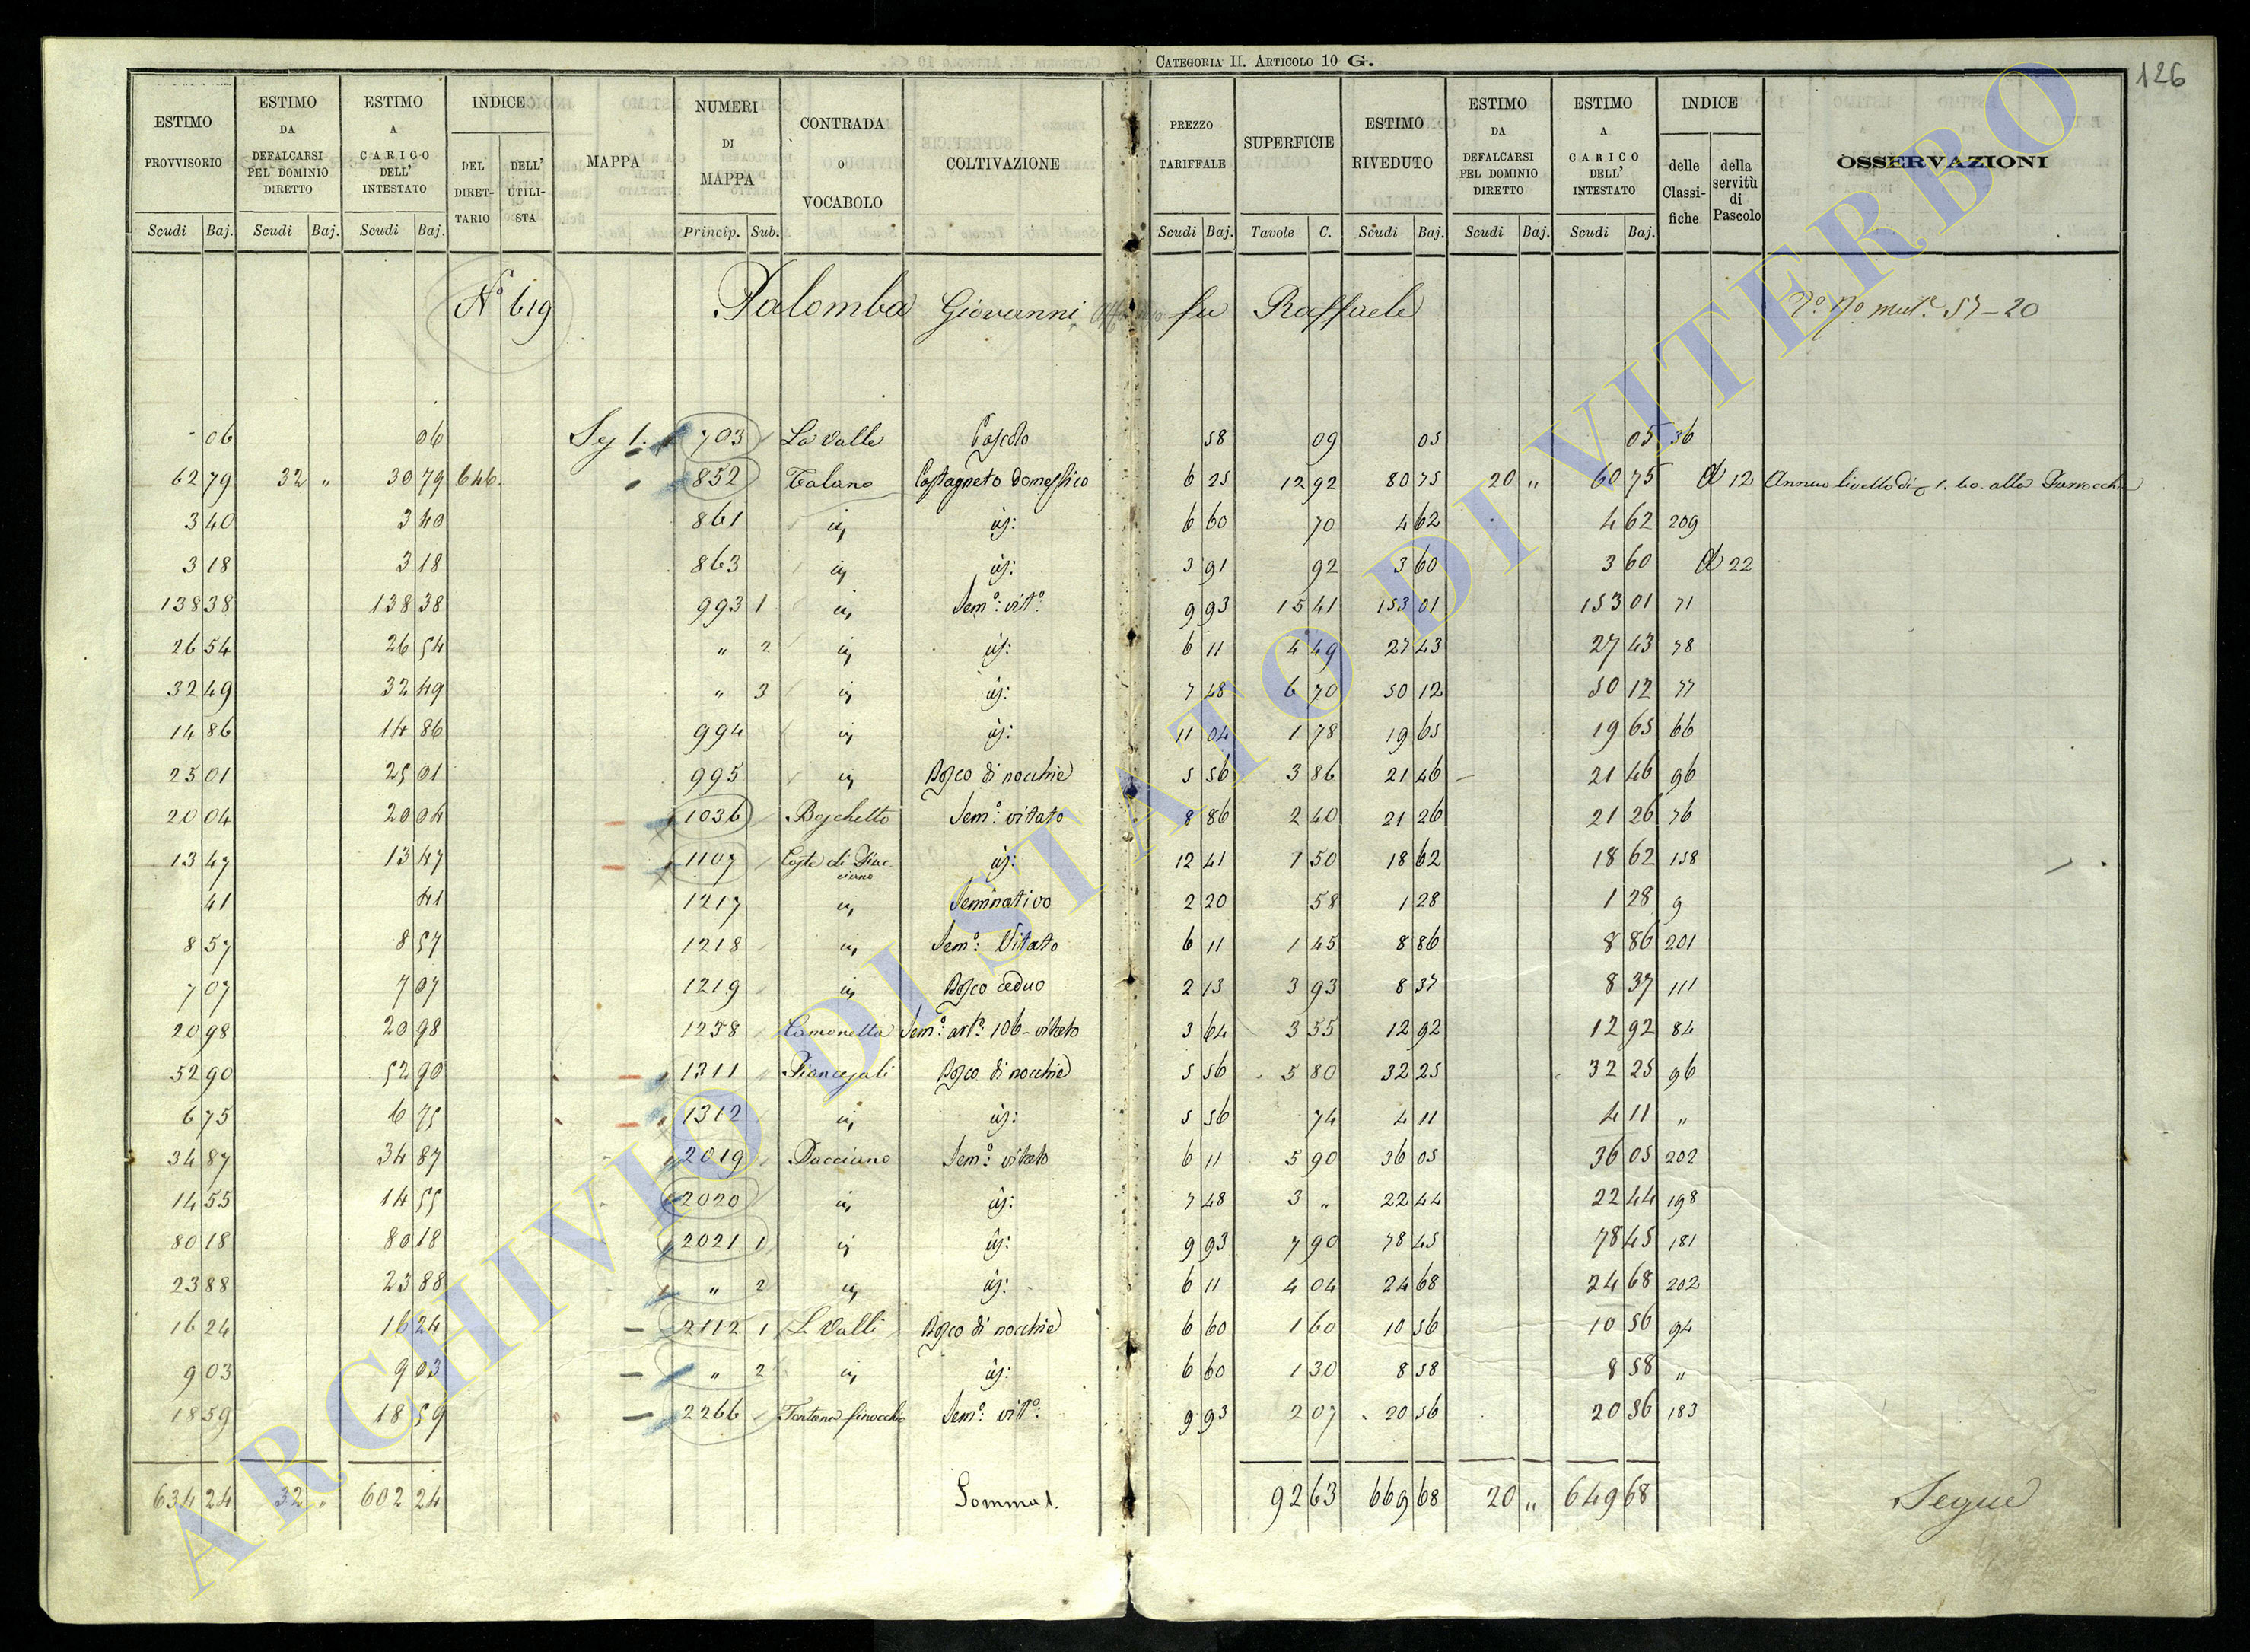 CATEGORIA II. ARTICOLO 10 G.
126
ESTIMO PROVVISORIO Scudi Baj. | ESTIMO DA DEFALCARSI PEL DOMINIO DIRETTO Scudi Baj. | ESTIMO A CARICO DELL' INTESTATO Scudi Baj. | INDICE DEL DIRET-TARIO | DELL' UTILI-STA | MAPPA | NUMERI DI MAPPA Princip. Sub. | CONTRADA O VOCABOLO | COLTIVAZIONE | PREZZO TARIFFALE Scudi Baj. | SUPERFICIE Tavole C. | ESTIMO RIVEDUTO Scudi Baj. | ESTIMO DA DEFALCARSI PEL DOMINIO DIRETTO Scudi Baj. | ESTIMO A CARICO DELL' INTESTATO Scudi Baj. | INDICE delle Classi-fiche | della servitù di Pascolo | OSSERVAZIONI
N° 619 Palomba Giovanni fu Raffaele 57-20
06 06 Sez 1. 703 La Valle Pascolo 58 09 05 05 36
62 79 32 " 30 79 646. 852 Talano Castagneto domestico 6 25 12 92 80 75 20 " 60 75 12 Annuo livello di 1.60. alla Parrocchia
3 40 3 40 861 id id: 6 60 70 4 62 4 62 209
3 18 3 18 863 id id: 3 91 92 3 60 3 60 22
138 38 138 38 993 1 id Sem°: vit° 9 93 15 41 153 01 153 01 71
26 54 26 54 " 2 id id: 6 11 4 49 27 43 27 43 78
32 49 32 49 " 3 id id: 7 48 6 70 50 12 50 12 77
14 86 14 86 994 id id: 11 04 1 78 19 65 19 65 66
25 01 25 01 995 id Bosco di nocchie 5 56 3 86 21 46 21 46 96
20 04 20 04 1036 Boschetto Sem°: vitato 8 86 2 40 21 26 21 26 76
13 47 13 47 1107 Coste di id: 12 41 1 50 18 62 18 62 158
41 41 1217 id Seminativo 2 20 58 1 28 1 28 9
8 57 8 57 1218 id Sem°: Vitato 6 11 1 45 8 86 8 86 201
7 07 7 07 1219 id Bosco ceduo 2 13 3 93 8 37 8 37 111
20 98 20 98 1238 Camonetta Sem°: art° 106 - vitato 3 64 3 55 12 92 12 92 84
52 90 52 90 1311 Biancajali Bosco di nocchie 5 56 5 80 32 25 32 25 96
6 75 6 75 1312 id id: 5 56 74 4 11 4 11 "
34 87 34 87 2019 Pacciano Sem°: vitato 6 11 5 90 36 05 36 05 202
14 55 14 55 2020 id id: 7 48 3 " 22 44 22 44 198
80 18 80 18 2021 1 id id: 9 93 7 90 78 45 78 45 181
23 88 23 88 " 2 id id: 6 11 4 04 24 68 24 68 202
16 24 16 24 2112 1 Valli Bosco di nocchie 6 60 1 60 10 56 10 56 94
9 03 9 03 " 2 id id: 6 60 1 30 8 58 8 58 "
18 59 18 59 2266 Fontana finocchio Sem°: vit°: 9 93 2 07 20 56 20 56 183
634 24 32 " 602 24 Somma 1. 92 63 669 68 20 " 649 68 Segue
ARCHIVIO DI STATO DI VITERBO